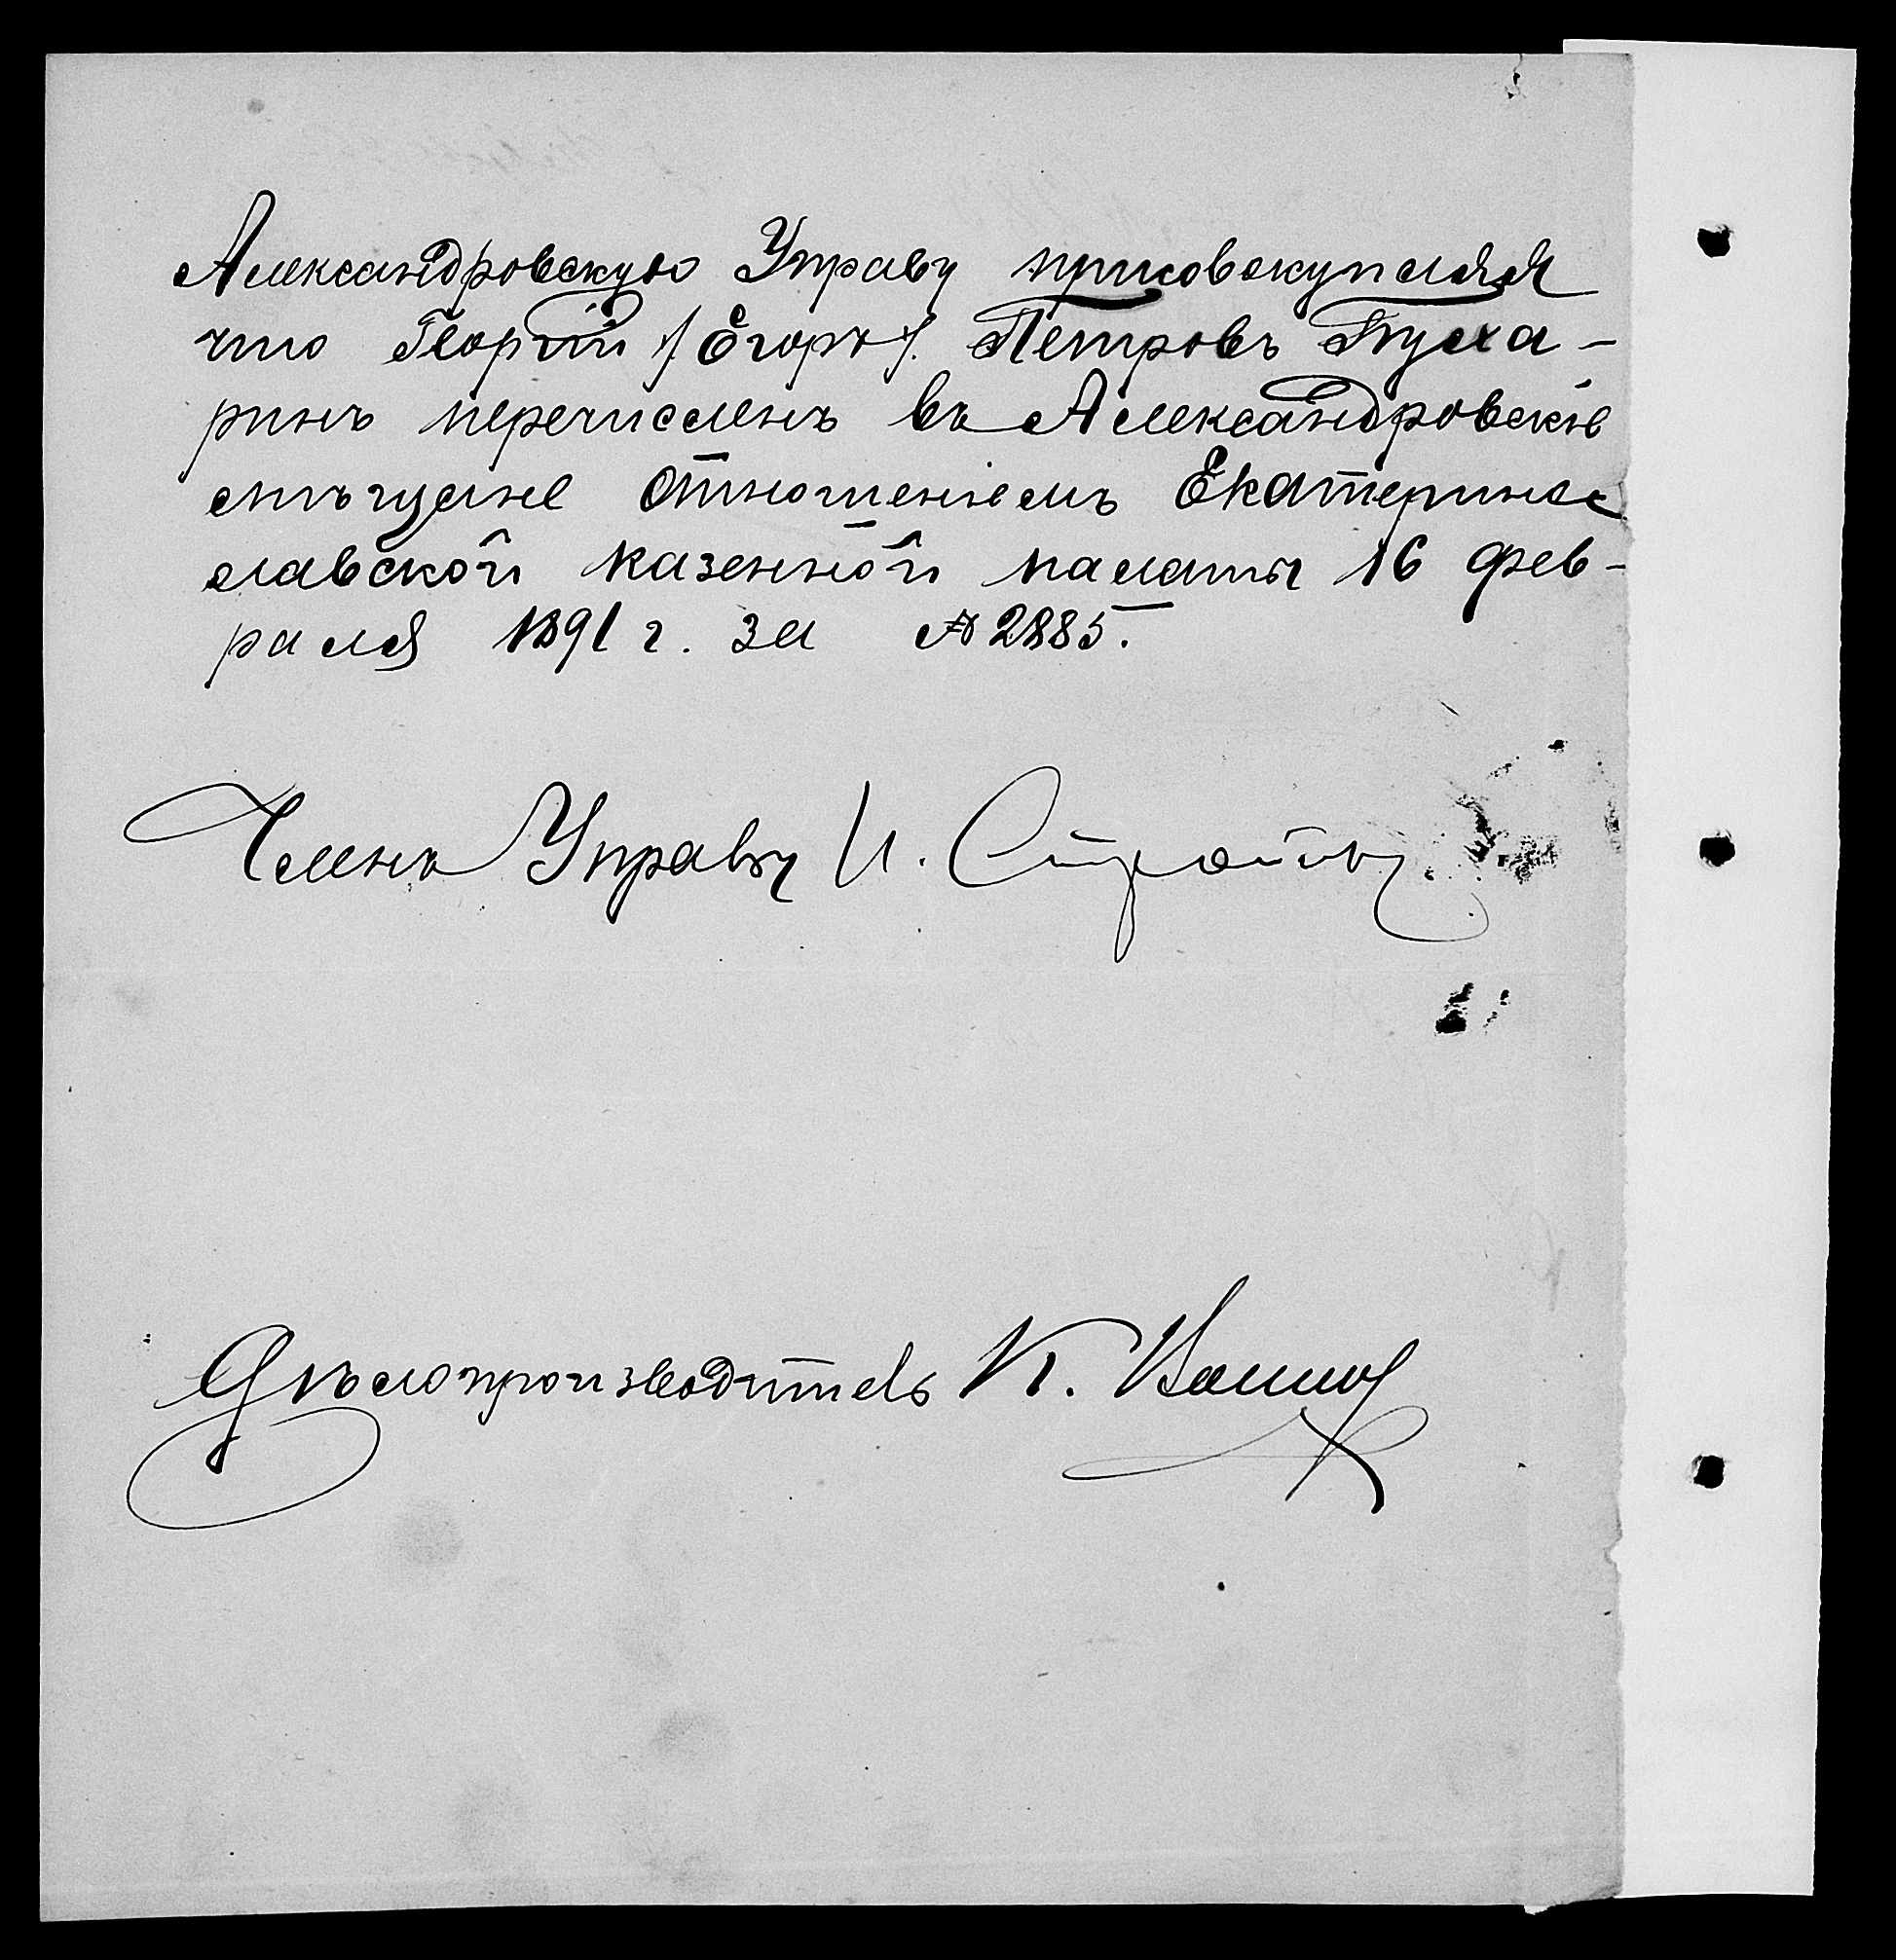 Александровскую Управу присовокупляя
что Георгій /: Егоръ :/ Петровъ Буха-
ринъ перечисленъ въ Александровскіе
мѣщане отношеніемъ Екатеринос
лавской казенной палаты 16 фев-
раля 1891 г. за № 2885.
Членъ Управы И.
Дѣлопроизводитель К.